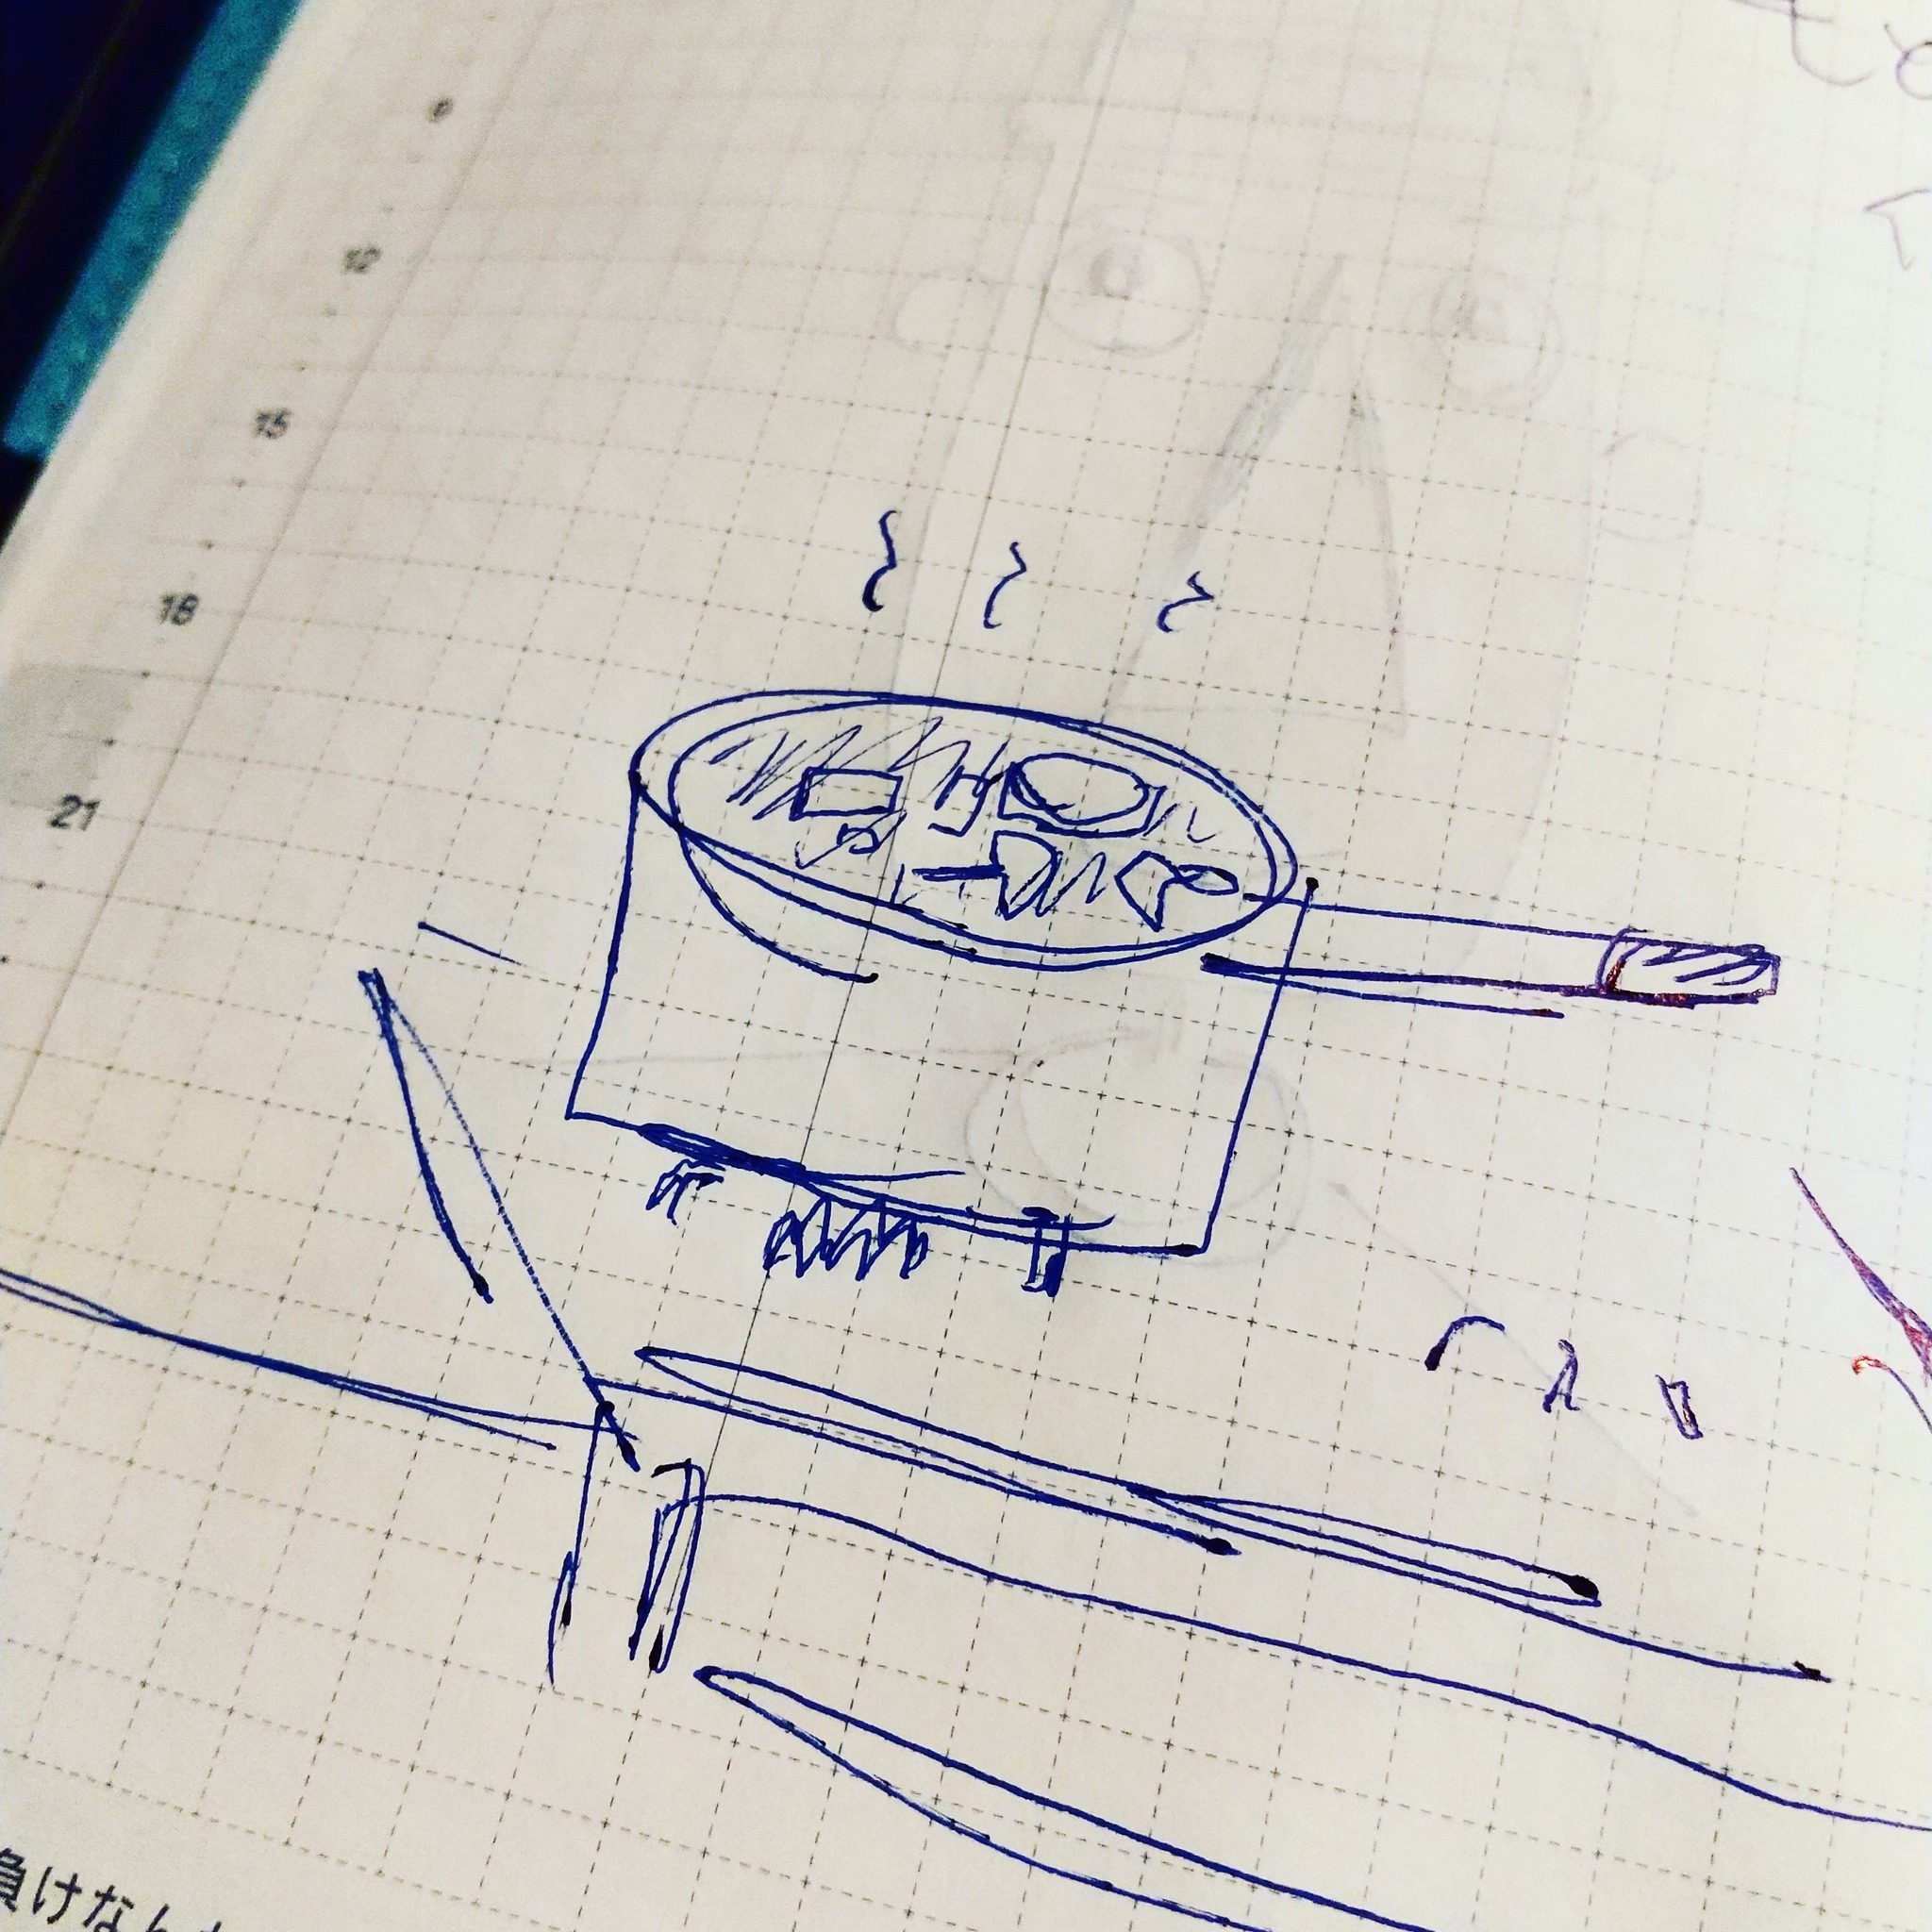 9
12
15
18
21
負けなん